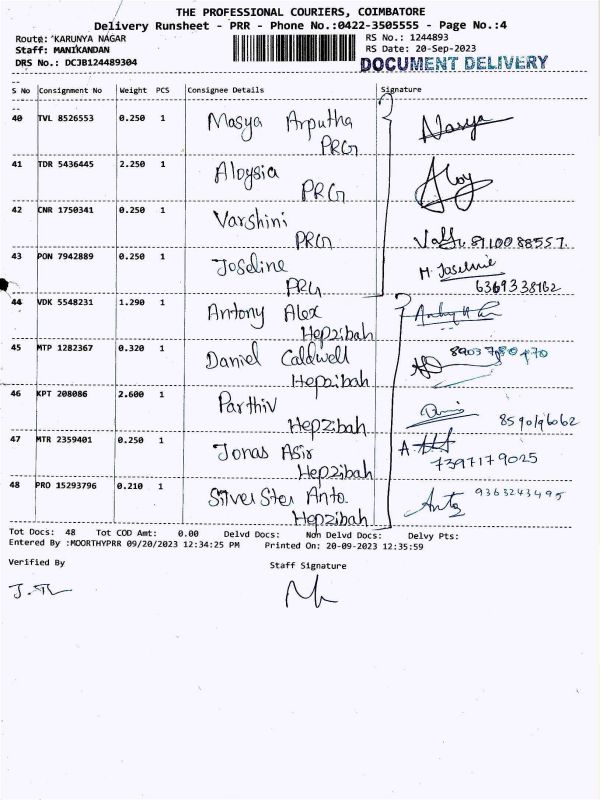 THE PROFESSIONAL COURIERS, COIMBATORE
Delivery Runsheet - PRR - Phone No.:0422-3505555 - Page No.:4
Route: KARUNYA NAGAR RS No.: 1244893
Staff: MANIKANDAN RS Date: 20-Sep-2023
DRS No.: DCJB124489304 DOCUMENT DELIVERY
S No Consignment No Weight PCS Consignee Details Signature
40 TVL 8526553 0.250 1 Masya Arputha
PRG
41 TDR 5436445 2.250 1 Aloysia Aloy
PRG
42 CNR 1750341 0.250 1 Varshini
PRG 8110088557.
43 PON 7942889 0.250 1 Joseline
PRG 6369338162
44 VDK 5548231 1.290 1 Antony Alex
Hepzibah
45 MTP 1282367 0.320 1 Daniel Caldwell
Hepzibah
46 KPT 208086 2.600 1 Parthiv
Hepzibah
47 MTR 2359401 0.250 1 Jonas Asir
Hepzibah 7397179025
48 PRO 15293796 0.210 1 Silverster Anto. Anto 9363243495
Hepzibah
Tot Docs: 48 Tot COD Amt: 0.00 Delvd Docs: Non Delvd Docs: Delvy Pts:
Entered By :MOORTHYPRR 09/20/2023 12:34:25 PM Printed On: 20-09-2023 12:35:59
Verified By Staff Signature